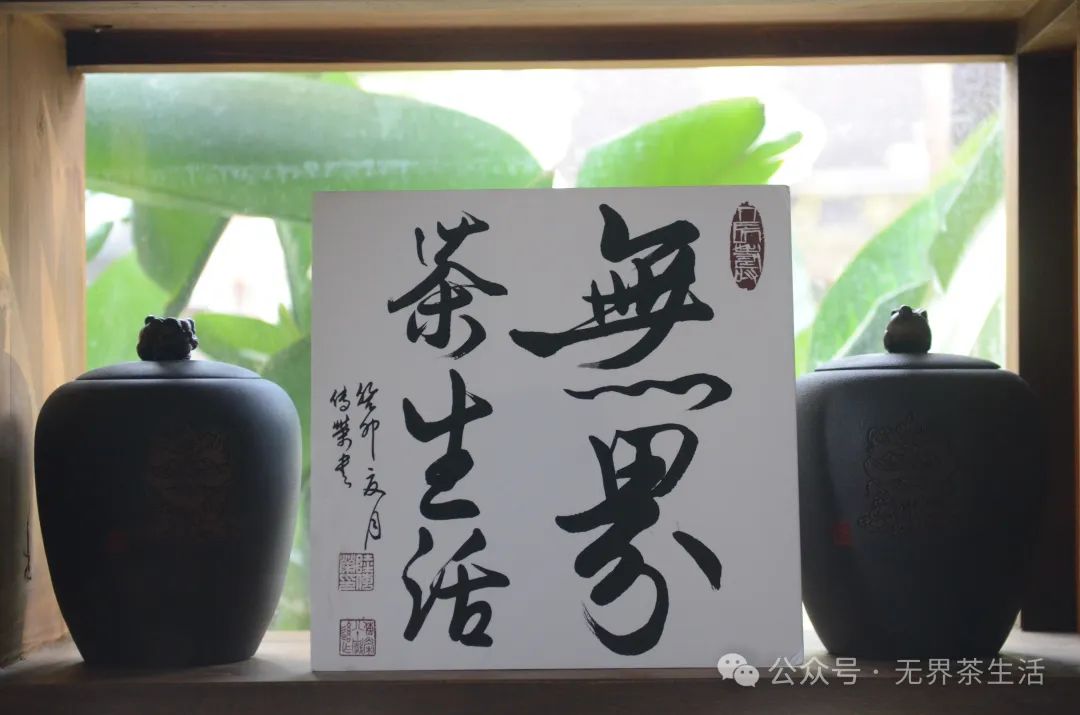 無界
茶生活
癸卯夏月
傳業书
公众号 · 无界茶生活